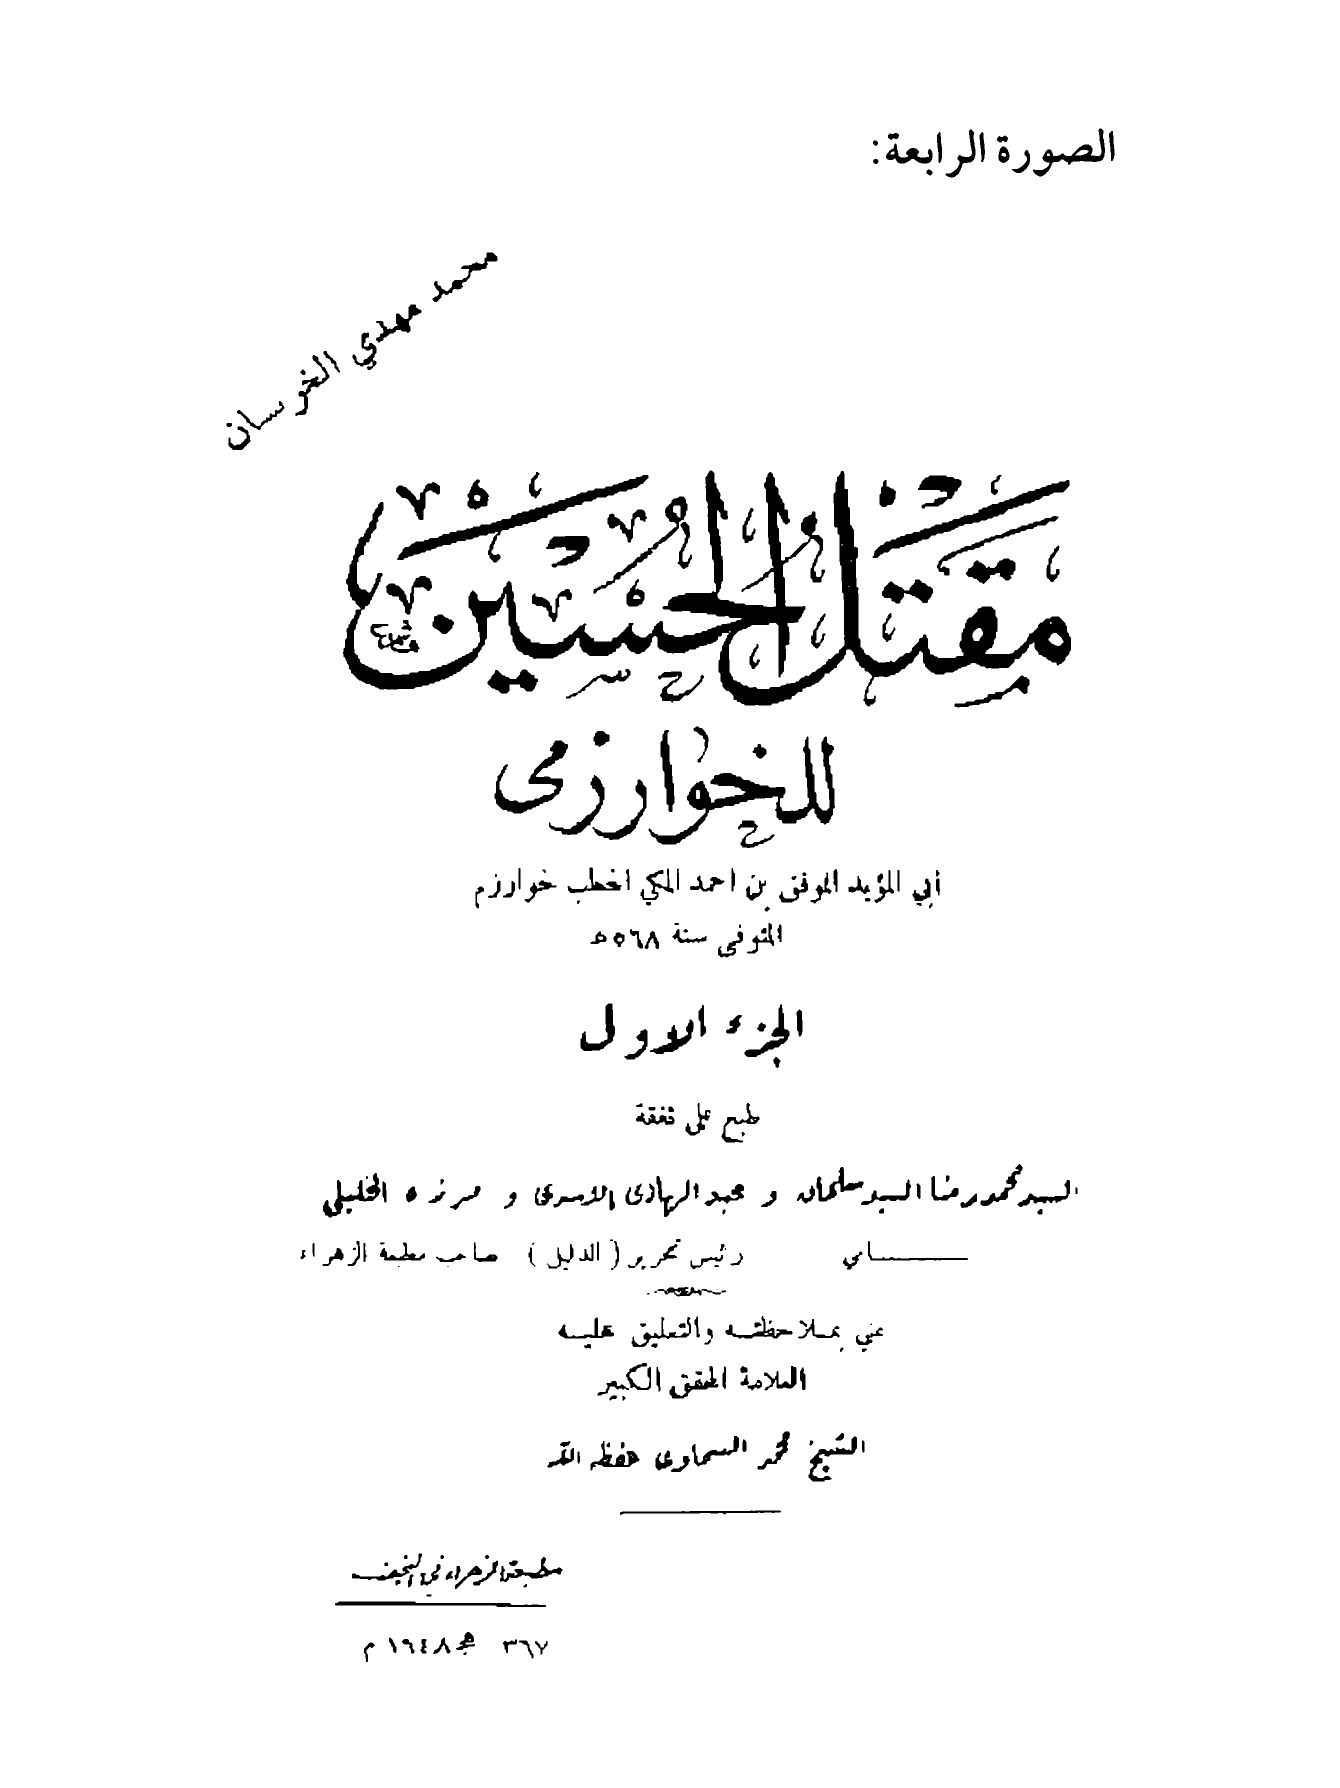 الصورة الرابعة:
محمد مهدي الخرسان
مقتل الحسين
للخوارزمى
أبي المؤيد الموفق بن احمد المكي اخطب خوارزم
المتوفى سنة ٥٦٨ ه
الجزء الاول
طبع على نفقة
السيد محمد رضا السيد سلمان و عبد الهادى الاسدى و ميرزه الخليلي
رئيس تحرير ( الدليل ) صاحب مطبعة الزهراء
عني بملاحظته والتعليق عليه
العلامة المحقق الكبير
الشيخ محمد السماوى حفظه الله
مطبعة الزهراء في النجف
٣٦٧ هج ١٩٤٨ م